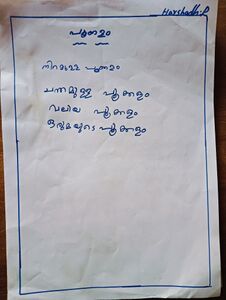 Harshadh.P
പൂക്കളം
നിറമുള്ള പൂക്കളം
ചന്തമുള്ള പൂക്കളം
വലിയ പൂക്കളം
ഒരുമയുടെ പൂക്കളം